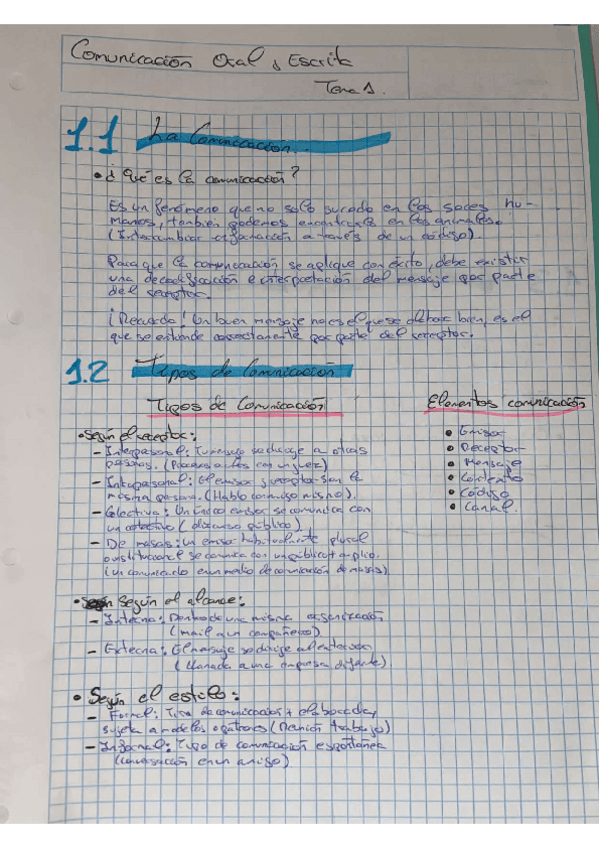 Comunicación Oral y Escrita
Tema 1.
1.1 La Comunicación.
• ¿Qué es la comunicación?
Es un fenómeno que no solo sucede en los seres hu-
manos, también podemos encontrarla en los animales.
(Intercambiar información a través de un código).
Para que la comunicación se aplique con éxito, debe existir
una decodificación e interpretación del mensaje por parte
del receptor.
¡Recuerda! Un buen mensaje no es el que se elabora bien, es el
que se entiende correctamente por parte del receptor.
1.2 Tipos de Comunicación
Tipos de Comunicación
• Según el receptor:
– Interpersonal: Tu mensaje se dirige a otras
personas. (Poderes con un juez)
– Intrapersonal: El emisor y receptor son la
misma persona. (Hablo conmigo mismo).
– Colectiva: Un único emisor se comunica con
un colectivo (discurso público)
– De masas: un emisor habitualmente plural
o institucional se comunica con un público + amplio.
(un comunicado en un medio de comunicación de masas).
• Según el alcance:
– Interna: Dentro de una misma organización
(mail a un compañero)
– Externa: El mensaje se dirige al exterior
(llamada a una empresa)
• Según el estilo:
– Formal: Tipo de comunicación + elaborada,
sujeta a modelos (Reunión trabajo)
– Informal: Tipo de comunicación espontánea
(conversación con un amigo)
Elementos comunicación
• Emisor
• Receptor
• Mensaje
• Contexto
• Código
• Canal.